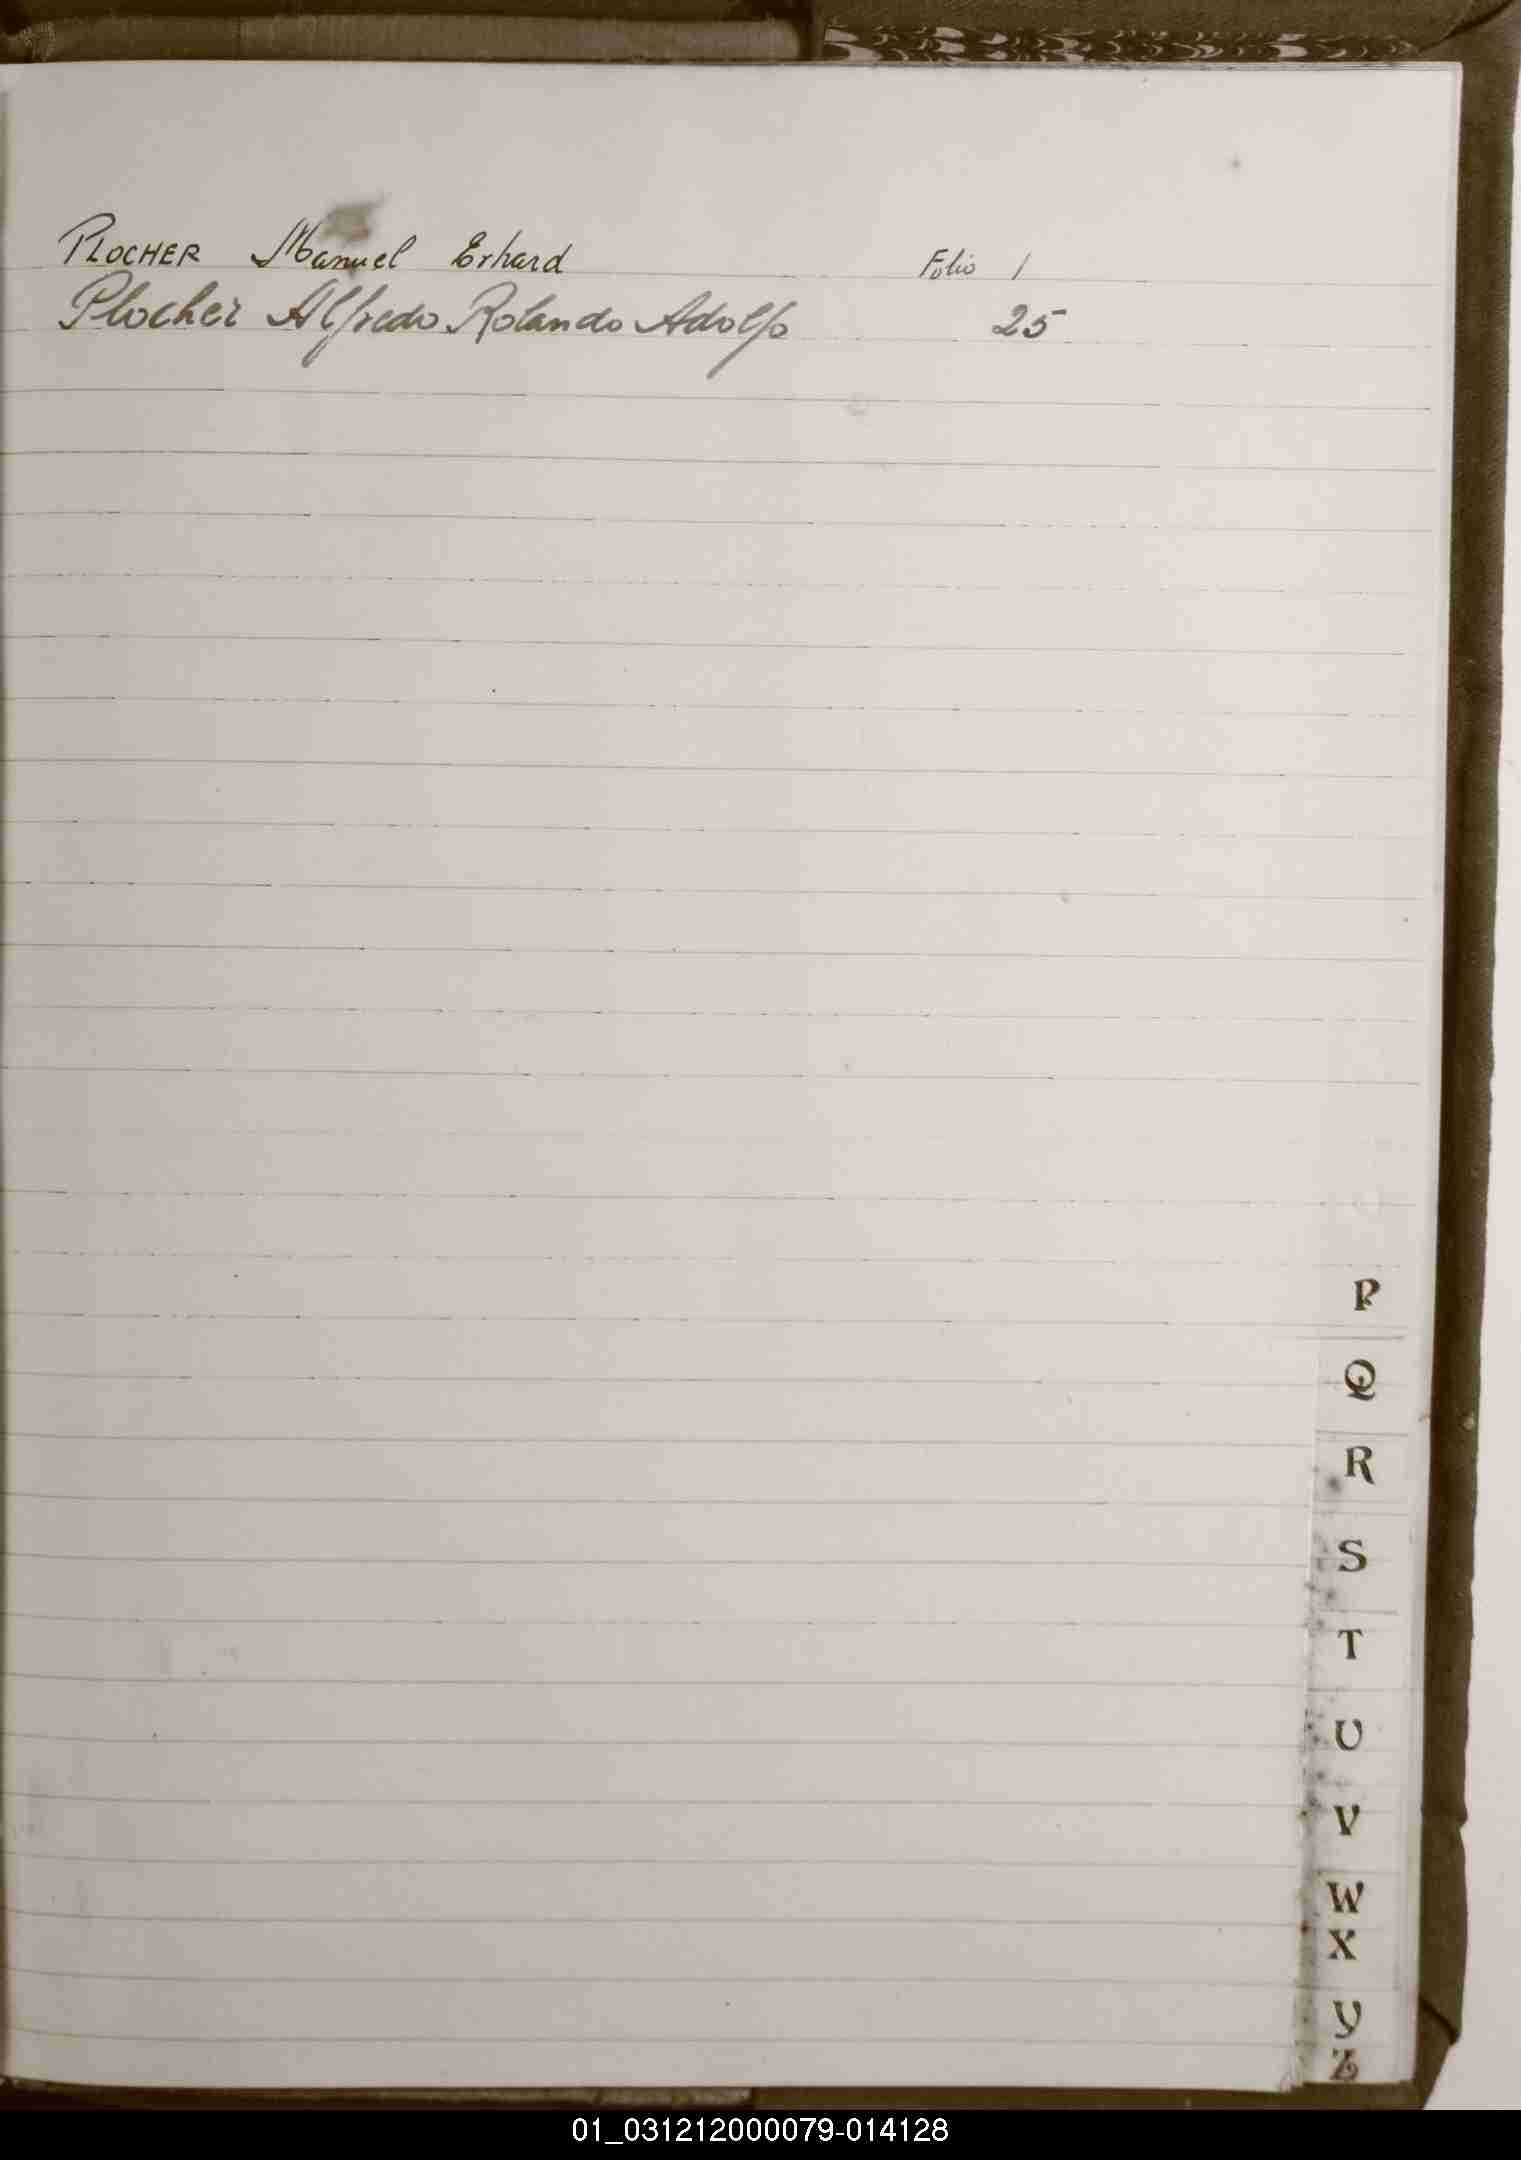 PLOCHER Manuel Erhard Folio 1
Plocher Alfredo Rolando Adolfo 25
P
Q
R
S
T
U
V
W
X
Y
Z
01_031212000079-014128